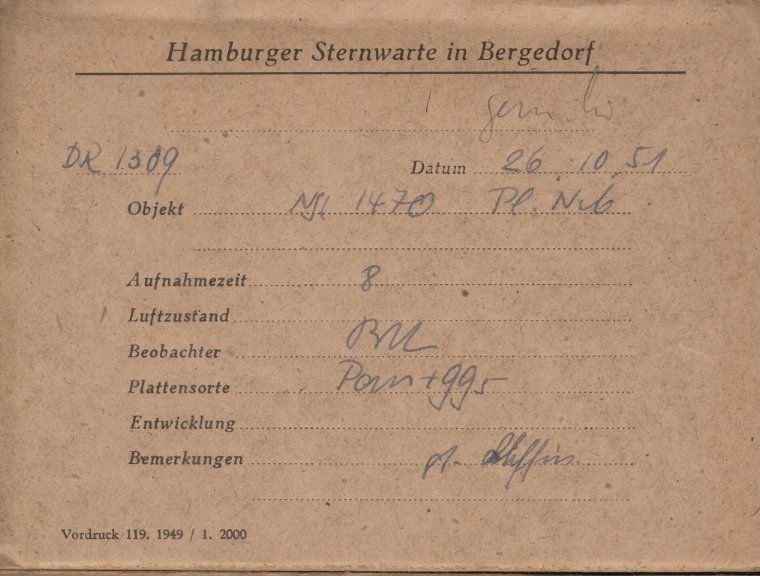 Hamburger Sternwarte in Bergedorf
DR 1309 Datum 26. 10. 51
Objekt 1470 Pl. Neb
Aufnahmezeit 8
Luftzustand
Beobachter
Plattensorte
Entwicklung
Bemerkungen
Vordruck 119. 1949 / 1. 2000